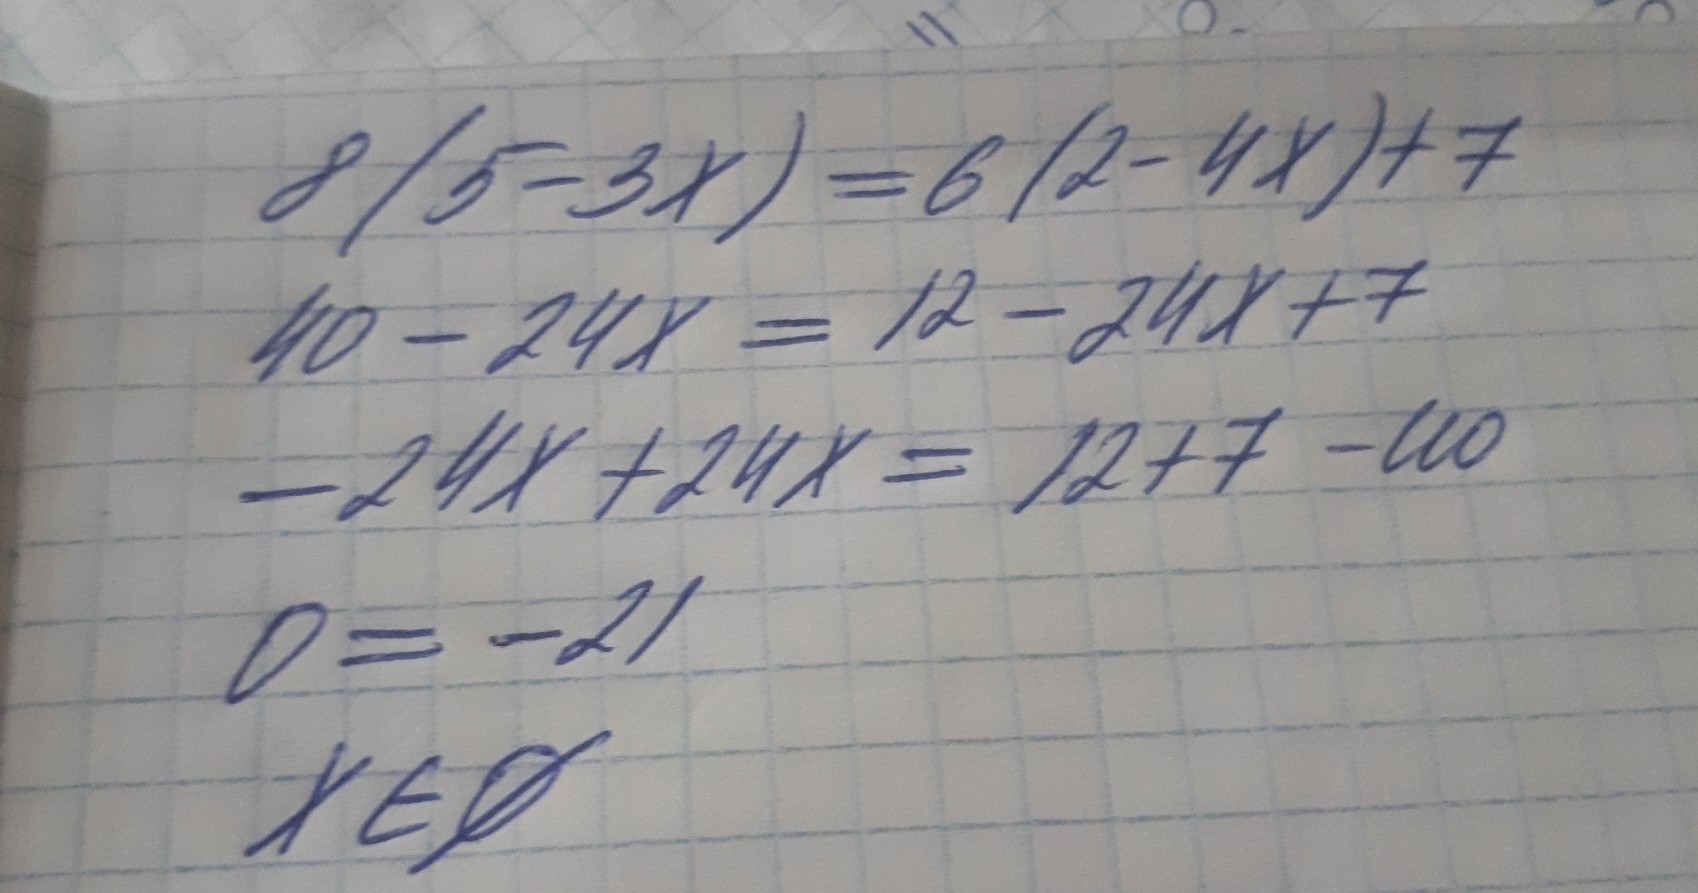 8(5-3x)=6(2-4x)+7
40-24x=12-24x+7
-24x+24x=12+7-40
0=-21
x∈∅